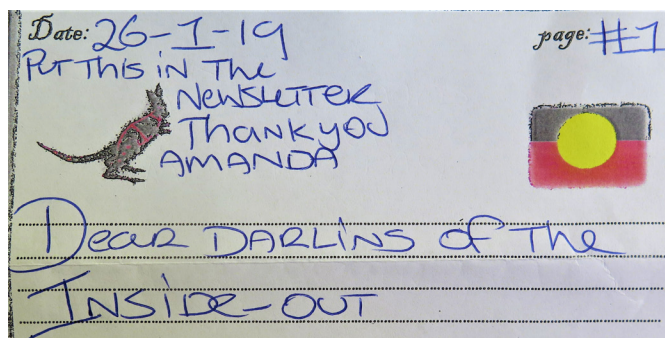 Date: 26-1-19 page: #1
PUT THIS IN THE
NEWSLETTER
THANK YOU
AMANDA
DEAR DARLINS OF THE
INSIDE-OUT